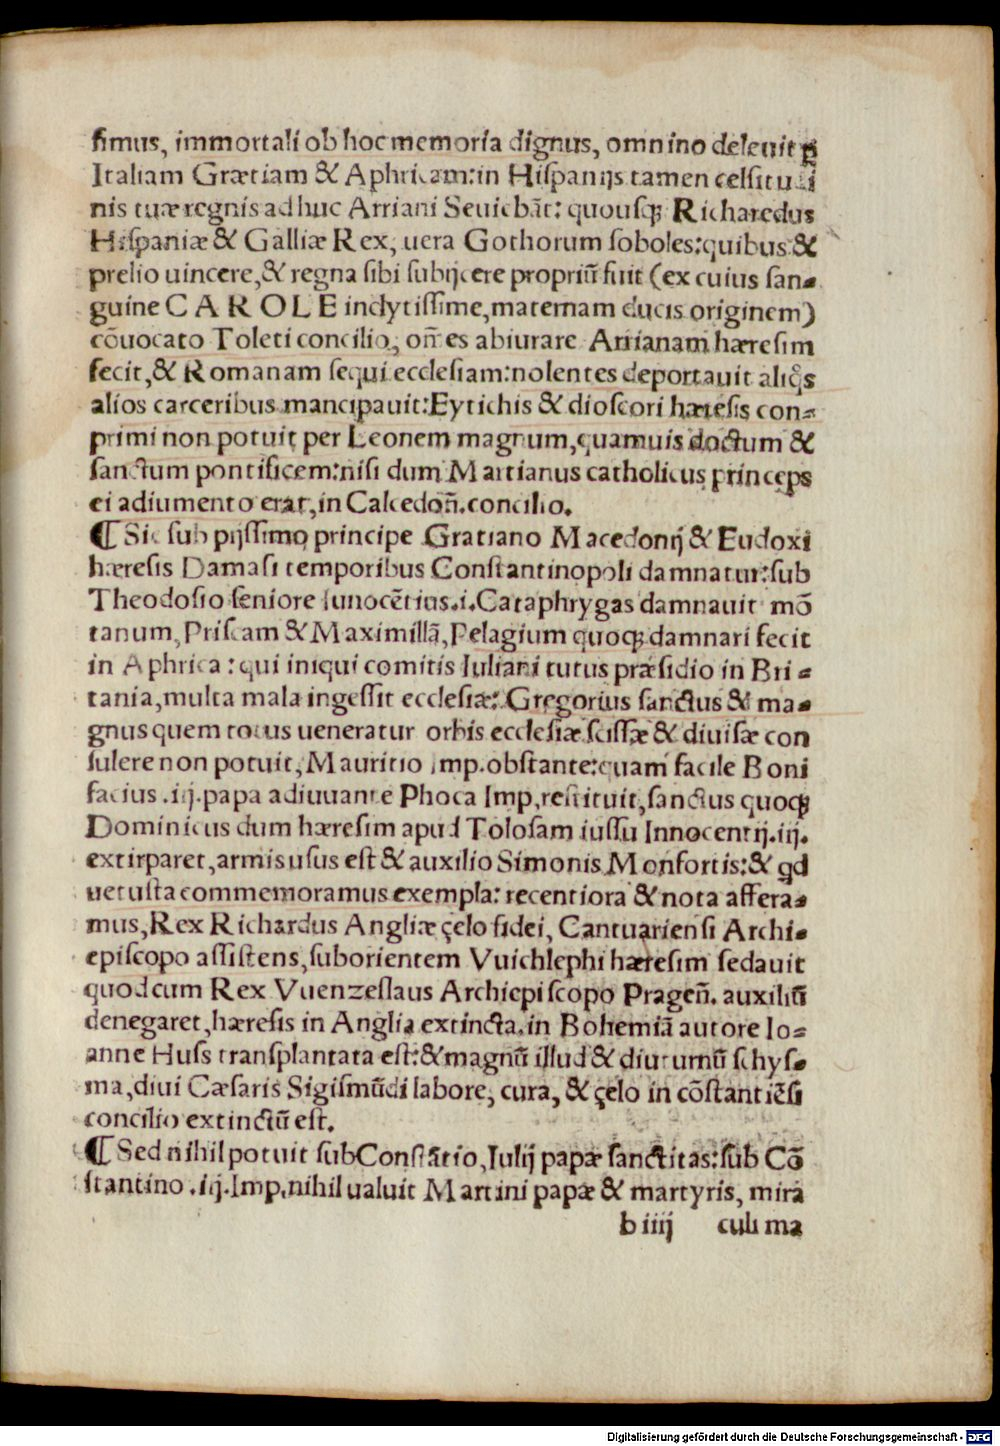 simus, immortali ob hoc memoria dignus, omnino deleuit ꝑ
Italiam Grætiam & Aphricam: in Hispanijs tamen celsitudi
nis tuæ regnis adhuc Arriani Seuiebāt: quousqꝫ Richaredus
Hispaniæ & Galliæ Rex, uera Gothorum soboles: quibus &
prelio uincere, & regna sibi subijcere propriū fuit (ex cuius san-
guine CAROLE inclytissime, maternam ducis originem)
cōuocato Toleti concilio, oñes abiurare Arrianam hæresim
fecit, & Romanam sequi ecclesiam: nolentes deportauit aliqͦs
alios carceribus mancipauit: Eytichis & dioscori hæresis con-
primi non potuit per Leonem magnum, quamuis doctum &
sanctum pontificem: nisi dum Martianus catholicus princeps
ei adiumento erat, in Calcedoñ. concilio.
¶ Sic sub pijssimo principe Gratiano Macedonij & Eudoxi
hæresis Damasi temporibus Constantinopoli damnatur: sub
Theodosio seniore Innocētius .i. Cataphrygas damnauit mō
tanum, Priscam & Maximillā, Pelagium quoqꝫ damnari fecit
in Aphrica: qui iniqui comitis Iuliani tutus præsidio in Bri-
tania, multa mala ingessit ecclesiæ: Gregorius sanctus & ma-
gnus quem totus ueneratur orbis ecclesiæ scissæ & diuisæ con
sulere non potuit, Mauritio imp. obstante: quam facile Boni
facius .iij. papa adiuuante Phoca Imp, restituit, sanctus quoqꝫ
Dominicus dum hæresim apud Tolosam iussu Innocentij .iij.
extirparet, armis usus est & auxilio Simonis Monfortis: & qd
uetusta commemoramus exempla: recentiora & nota affera-
mus, Rex Richardus Angliæ çelo fidei, Cantuariensi Archi-
episcopo assistens, suborientem Vuichlephi hæresim sedauit
quod cum Rex Vuenzeslaus Archiepiscopo Prageñ. auxiliū
denegaret, hæresis in Anglia extincta. in Bohemiā autore Io-
anne Huss transplantata est: & magnū illud & diuturnū schys-
ma, diui Cæsaris Sigismūdi labore, cura, & çelo in cōstantiēsi
concilio extinctū est.
¶ Sed nihil potuit sub Constātio, Iulij papæ sanctitas: sub Cō
stantino .iij. Imp. nihil ualuit Martini papæ & martyris, mira
b iiij culi ma
Digitalisierung gefördert durch die Deutsche Forschungsgemeinschaft - DFG